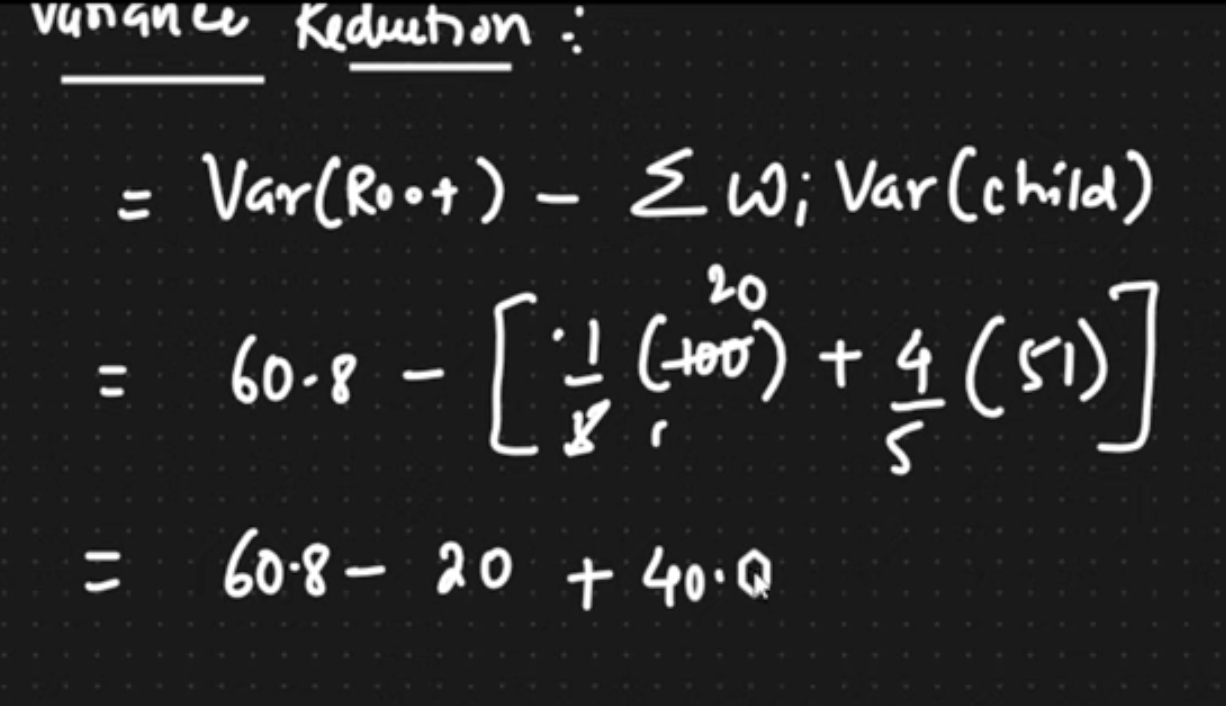 Variance Reduction :
= Var(Root) - Σ Wi Var(child)
= 60.8 - [ 1/5 (100) 20 1 + 4/5 (51) ]
= 60.8 - 20 + 40.